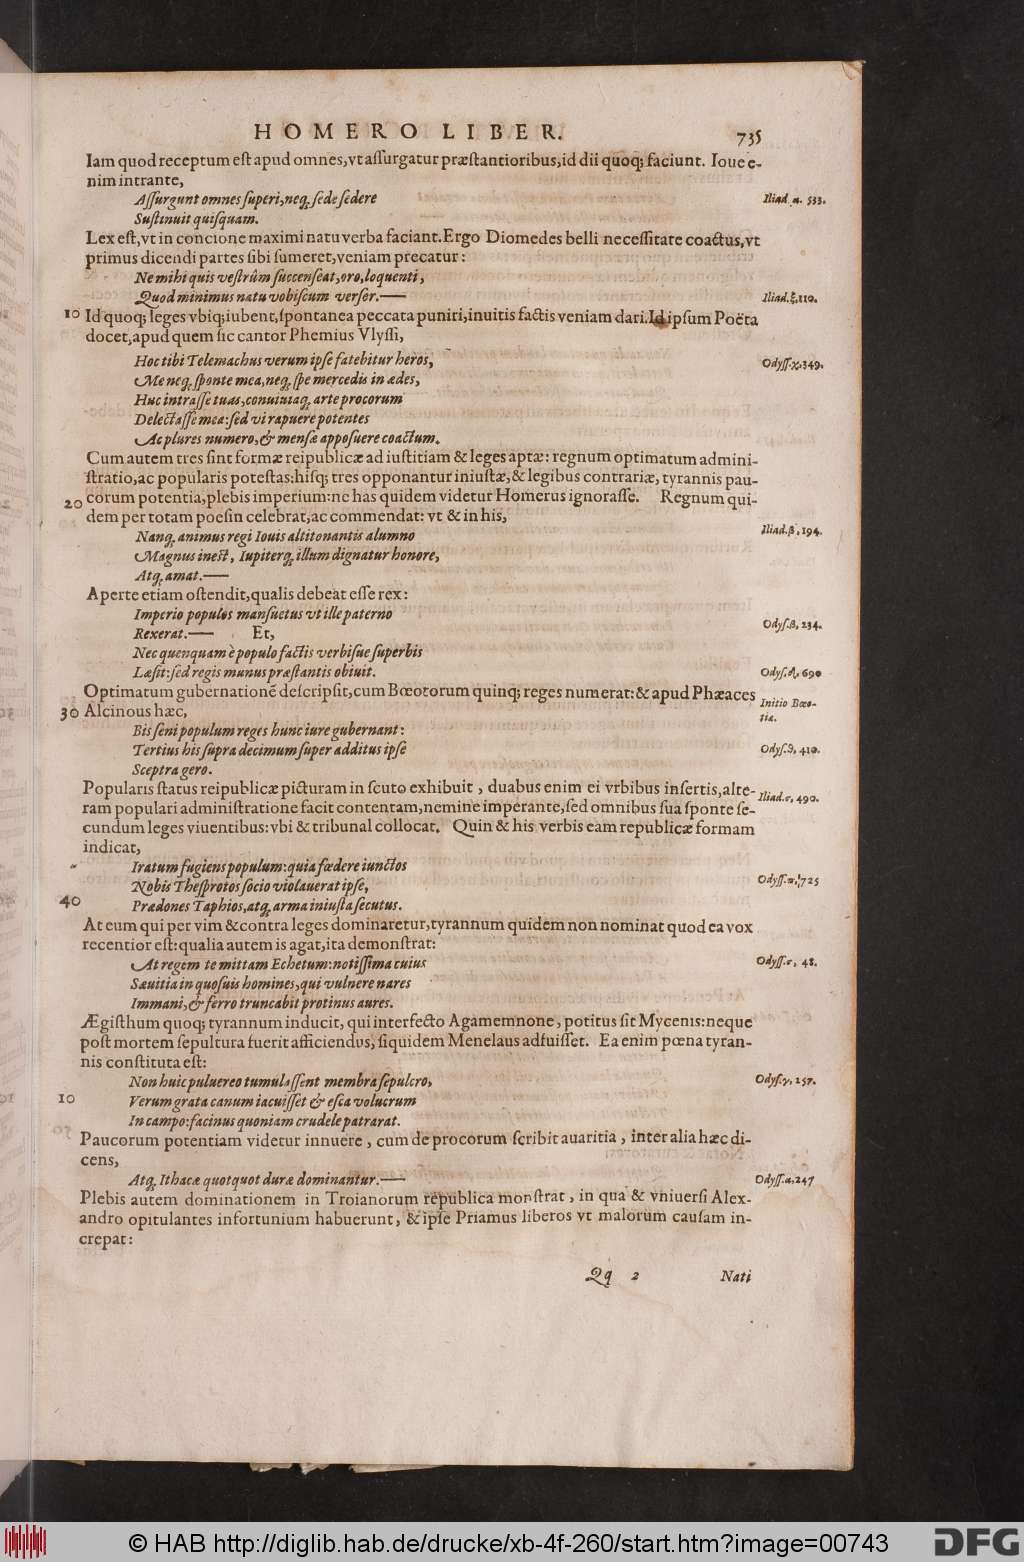 HOMERO LIBER.
735
Iam quod receptum est apud omnes, vt assurgatur præstantioribus, id dii quoq; faciunt. Ioue e-
nim intrante,
Assurgunt omnes superi, neq; sede sedere
Iliad. α. 533.
Sustinuit quisquam.
Lex est, vt in concione maximi natu verba faciant. Ergo Diomedes belli necessitate coactus, vt
primus dicendi partes sibi sumeret, veniam precatur:
Ne mihi quis vestrûm succenseat, oro, loquenti,
Quod minimus natu vobiscum verser.——
Iliad. ξ. 110.
10 Id quoq; leges vbiq; iubent, spontanea peccata puniri, inuitis factis veniam dari. Id ipsum Poëta
docet, apud quem sic cantor Phemius Vlyssi,
Hoc tibi Telemachus verum ipse fatebitur heros,
Odyss. χ. 349.
Me neq; sponte mea, neq; spe mercedis in ædes,
Huc intrasse tuas, conuiuiaq; arte procorum
Delectasse mea: sed vi rapuere potentes
Ac plures numero, & mensæ apposuere coactum.
Cum autem tres sint formæ reipublicæ ad iustitiam & leges aptæ: regnum optimatum admini-
stratio, ac popularis potestas: hisq; tres opponantur iniustæ, & legibus contrariæ, tyrannis pau-
20 corum potentia, plebis imperium: ne has quidem videtur Homerus ignorasse. Regnum qui-
dem per totam poesin celebrat, ac commendat: vt & in his,
Nanq; animus regi Iouis altitonantis alumno
Iliad. β. 194.
Magnus inest, Iupiterq; illum dignatur honore,
Atq; amat.——
Aperte etiam ostendit, qualis debeat esse rex:
Imperio populos mansuetus vt ille paterno
Odys. β. 234.
Rexerat.—— Et,
Nec quenquam è populo factis verbisue superbis
Læsit: sed regis munus præstantis obiuit.
Odys. δ. 690
Optimatum gubernationē descripsit, cum Bœotorum quinq; reges numerat: & apud Phæaces
Initio Bœo-
tiæ.
30 Alcinous hæc,
Bis seni populum reges hunc iure gubernant:
Tertius his supra decimum super additus ipse
Odys. θ, 410.
Sceptra gero.
Popularis status reipublicæ picturam in scuto exhibuit, duabus enim ei vrbibus insertis, alte-
Iliad. σ, 490.
ram populari administratione facit contentam, nemine imperante, sed omnibus sua sponte se-
cundum leges viuentibus: vbi & tribunal collocat. Quin & his verbis eam republicæ formam
indicat,
Iratum fugiens populum: quia fœdere iunctos
Nobis Thesprotos socio violauerat ipse,
Odyss. π, 725
40 Prædones Taphios, atq; arma iniusta secutus.
At eum qui per vim & contra leges dominaretur, tyrannum quidem non nominat quod ea vox
recentior est: qualia autem is agat, ita demonstrat:
At regem te mittam Echetum: notissima cuius
Odyss. σ, 48.
Sæuitia in quosuis homines, qui vulnere nares
Immani, & ferro truncabit protinus aures.
Ægisthum quoq; tyrannum inducit, qui interfecto Agamemnone, potitus sit Mycenis: neque
post mortem sepultura fuerit afficiendus, siquidem Menelaus adfuisset. Ea enim pœna tyran-
nis constituta est:
Non huic puluereo tumulassent membra sepulcro,
Odys. γ, 257.
10 Verum grata canum iacuisset & esca volucrum
In campo: facinus quoniam crudele patrarat.
Paucorum potentiam videtur innuere, cum de procorum scribit auaritia, inter alia hæc di-
cens,
Atq; Ithacæ quotquot duræ dominantur.——
Odyss. α, 247
Plebis autem dominationem in Troianorum republica monstrat, in qua & vniuersi Alex-
andro opitulantes infortunium habuerunt, & ipse Priamus liberos vt malorum causam in-
crepat:
Qq 2
Nati
© HAB http://diglib.hab.de/drucke/xb-4f-260/start.htm?image=00743
DFG